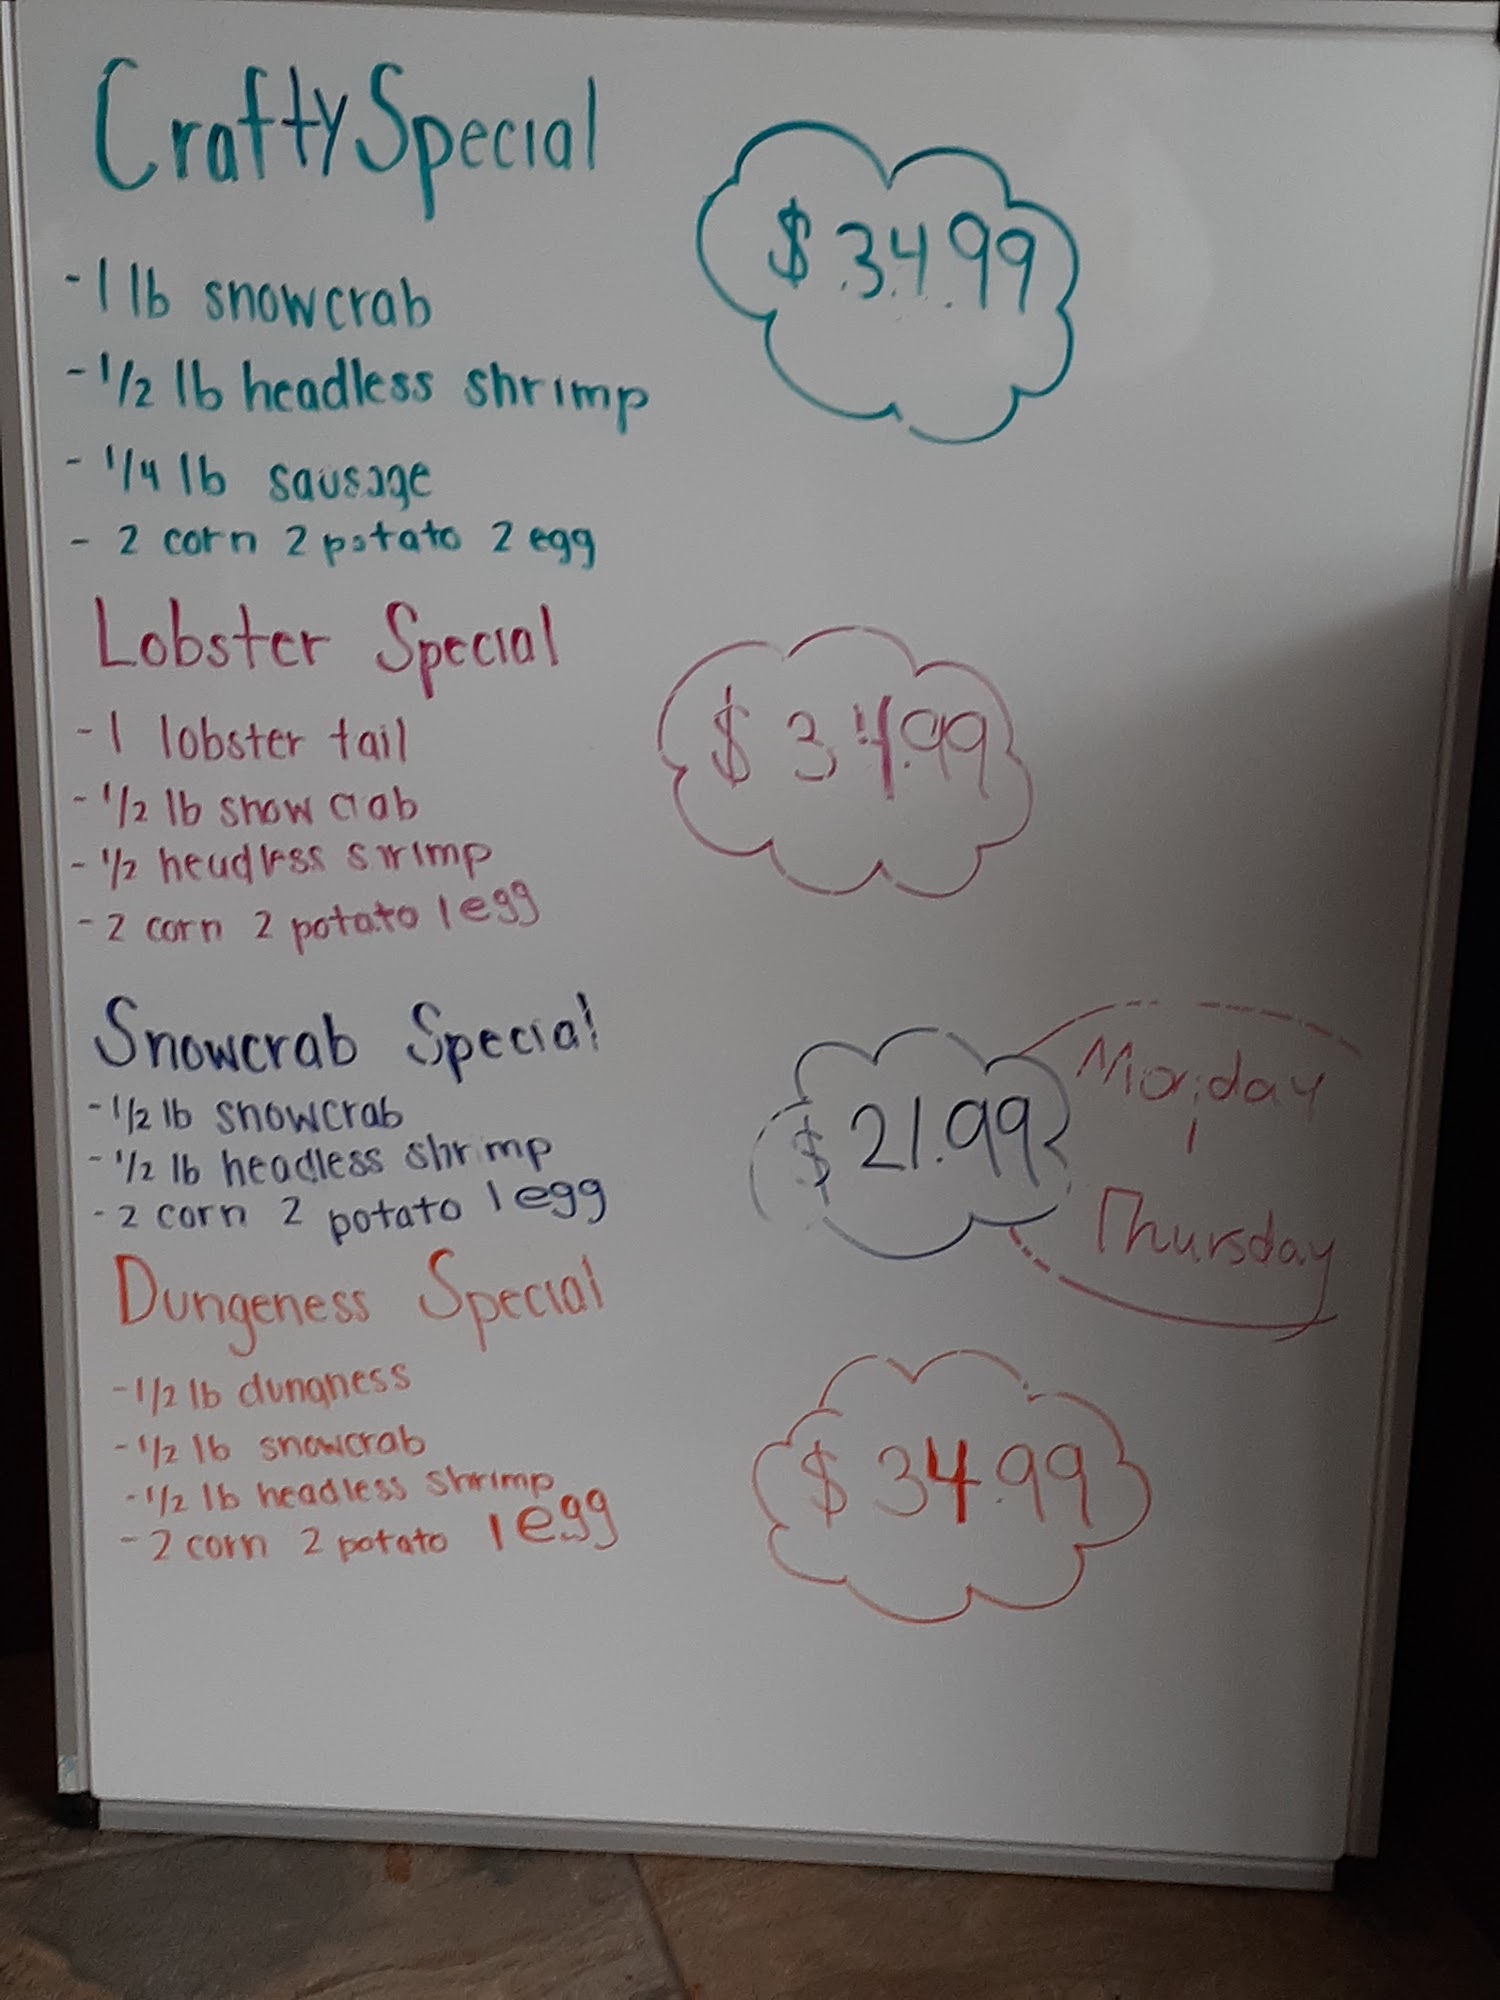 Crafty Special
$34.99
- 1 lb snowcrab
- 1/2 lb headless shrimp
- 1/4 lb sausage
- 2 corn 2 potato 2 egg
Lobster Special
$34.99
- 1 lobster tail
- 1/2 lb snow crab
- 1/2 headless srimp
- 2 corn 2 potato 1 egg
Snowcrab Special
$21.99
Monday
-
Thursday
- 1/2 lb snowcrab
- 1/2 lb headless shrimp
- 2 corn 2 potato 1 egg
Dungeness Special
$34.99
- 1/2 lb dungness
- 1/2 lb snowcrab
- 1/2 lb headless shrimp
- 2 corn 2 potato 1 egg